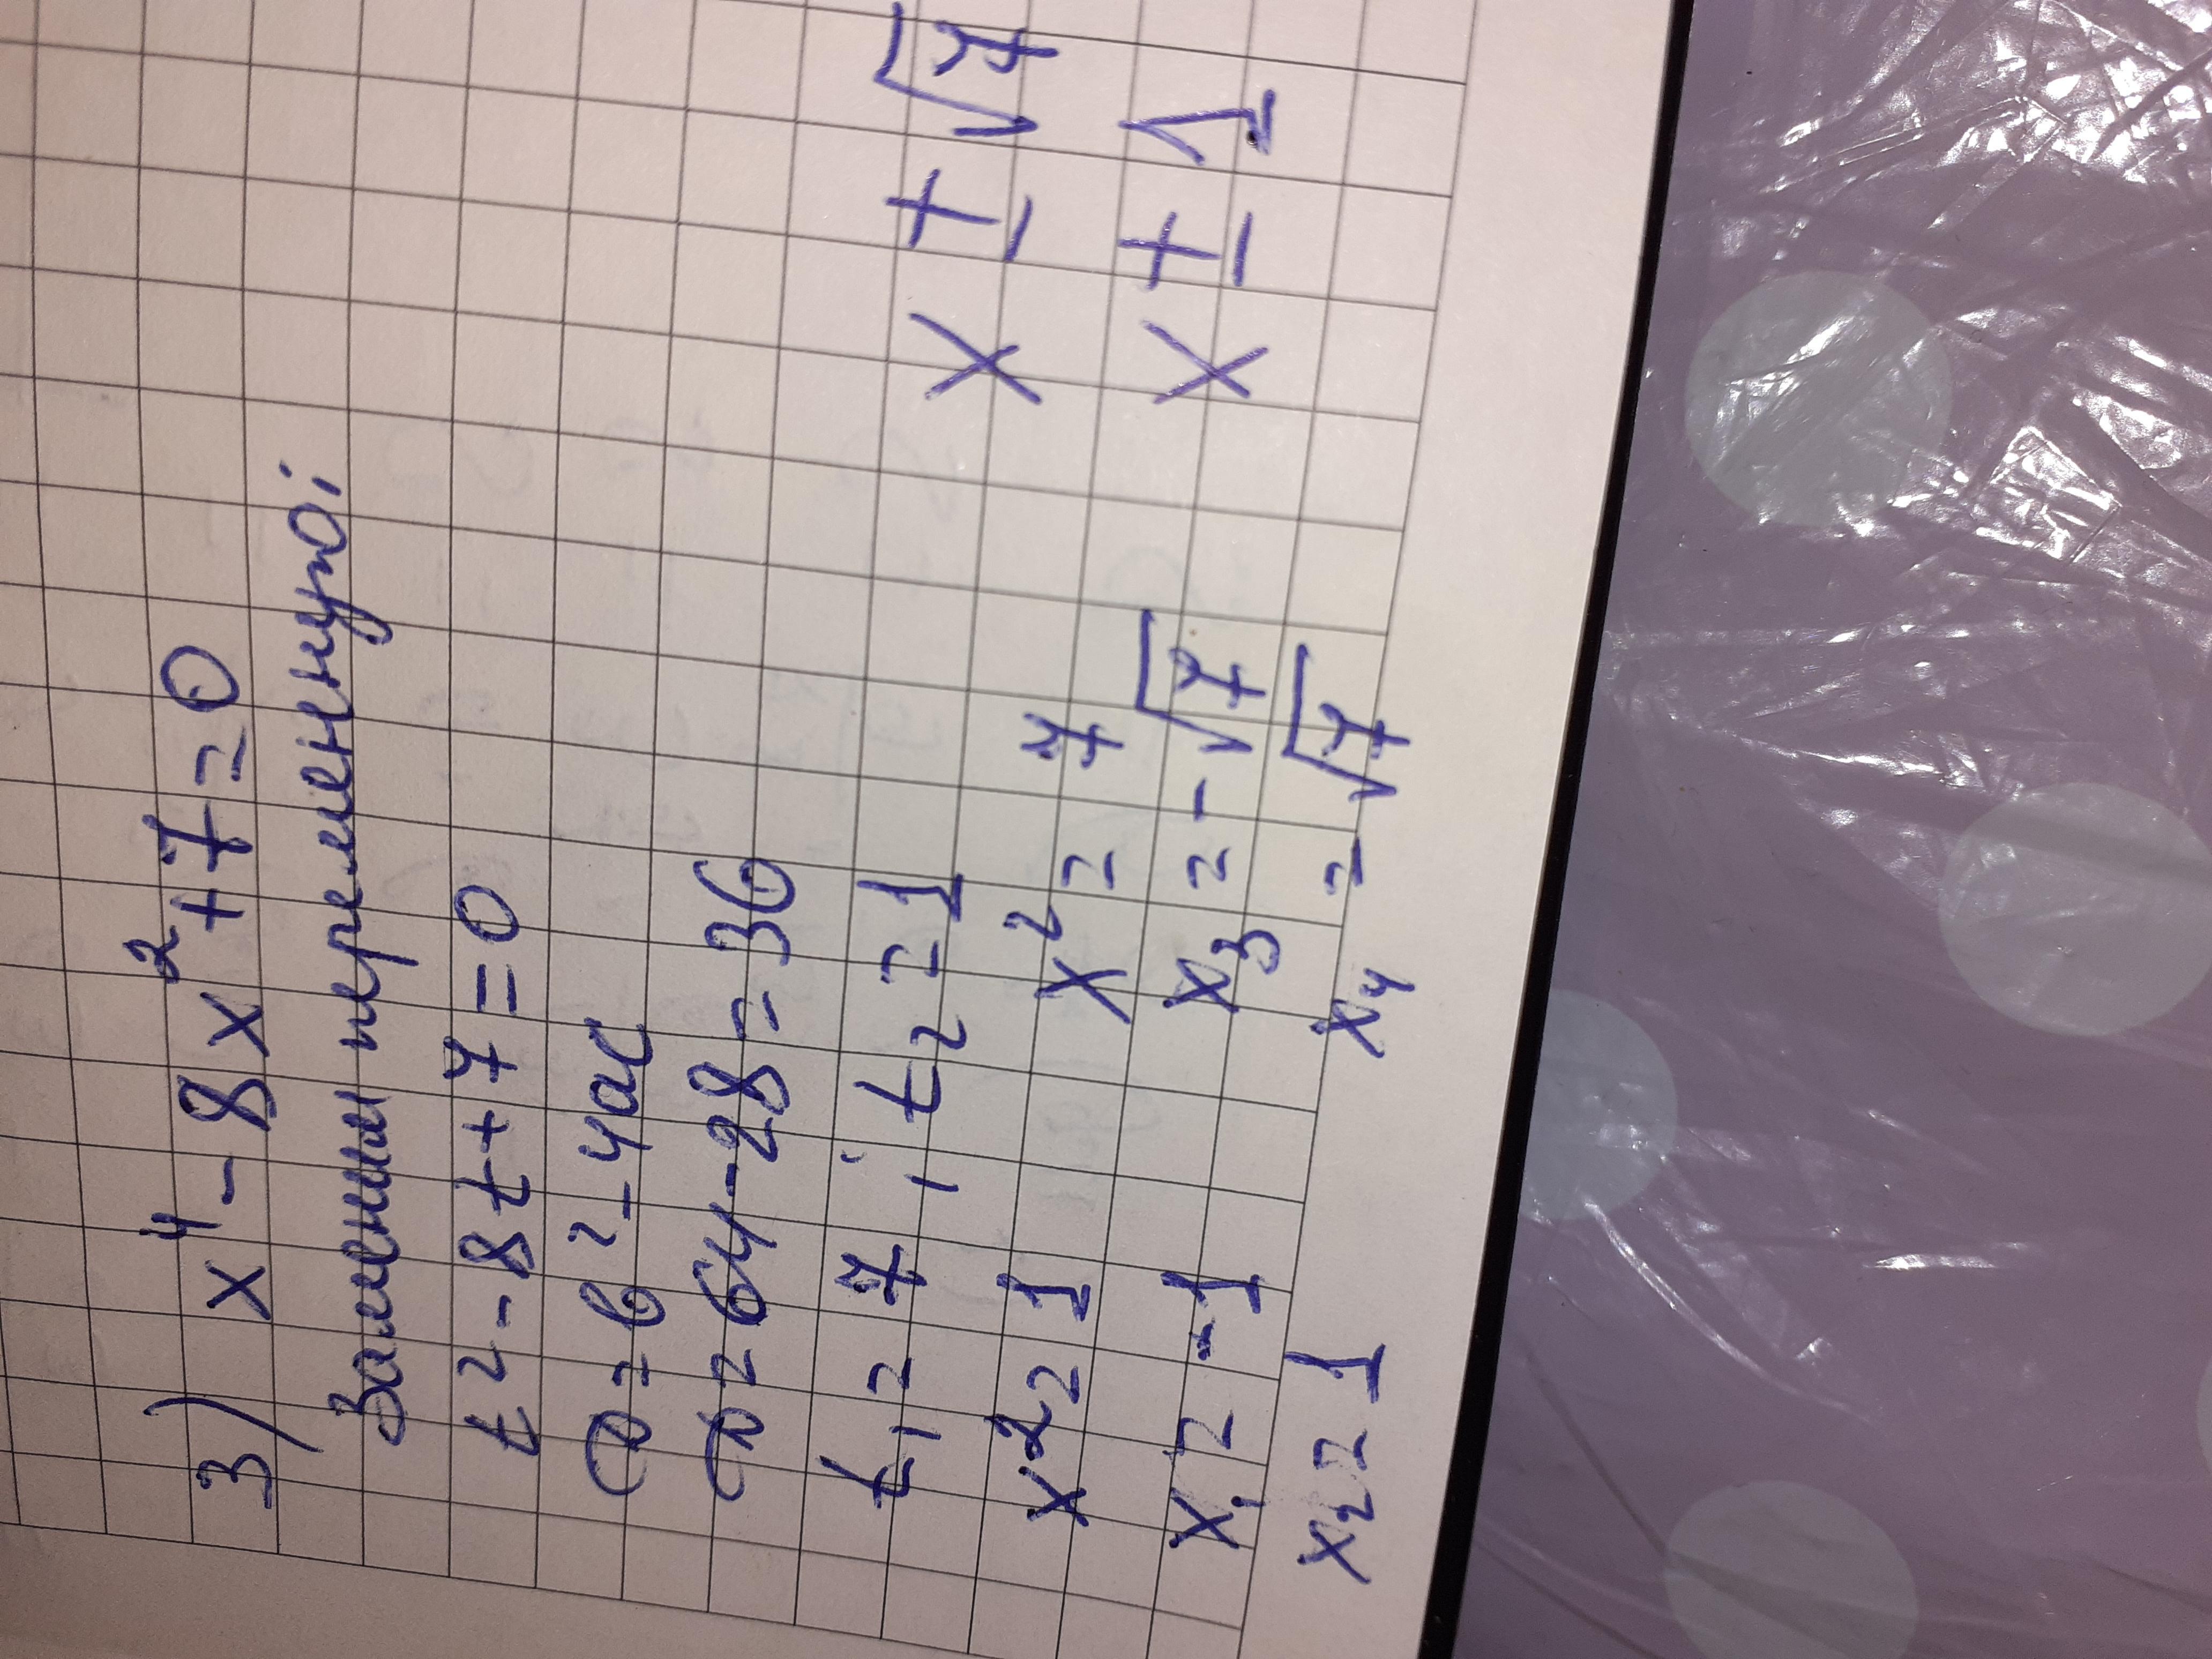 3) x⁴ - 8x² + 7 = 0
Заменим переменную:
t² - 8t + 7 = 0
D = b² - 4ac
D = 64 - 28 = 36
t₁ = 7 ; t₂ = 1
x² = 1 x² = 7 x ± √7
x₁ = -1 x₃ = -√7 x ± √1
x₂ = 1 x₄ = √7